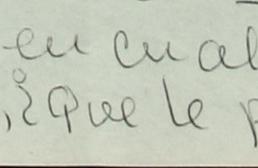 en cual
, ¿Que le p